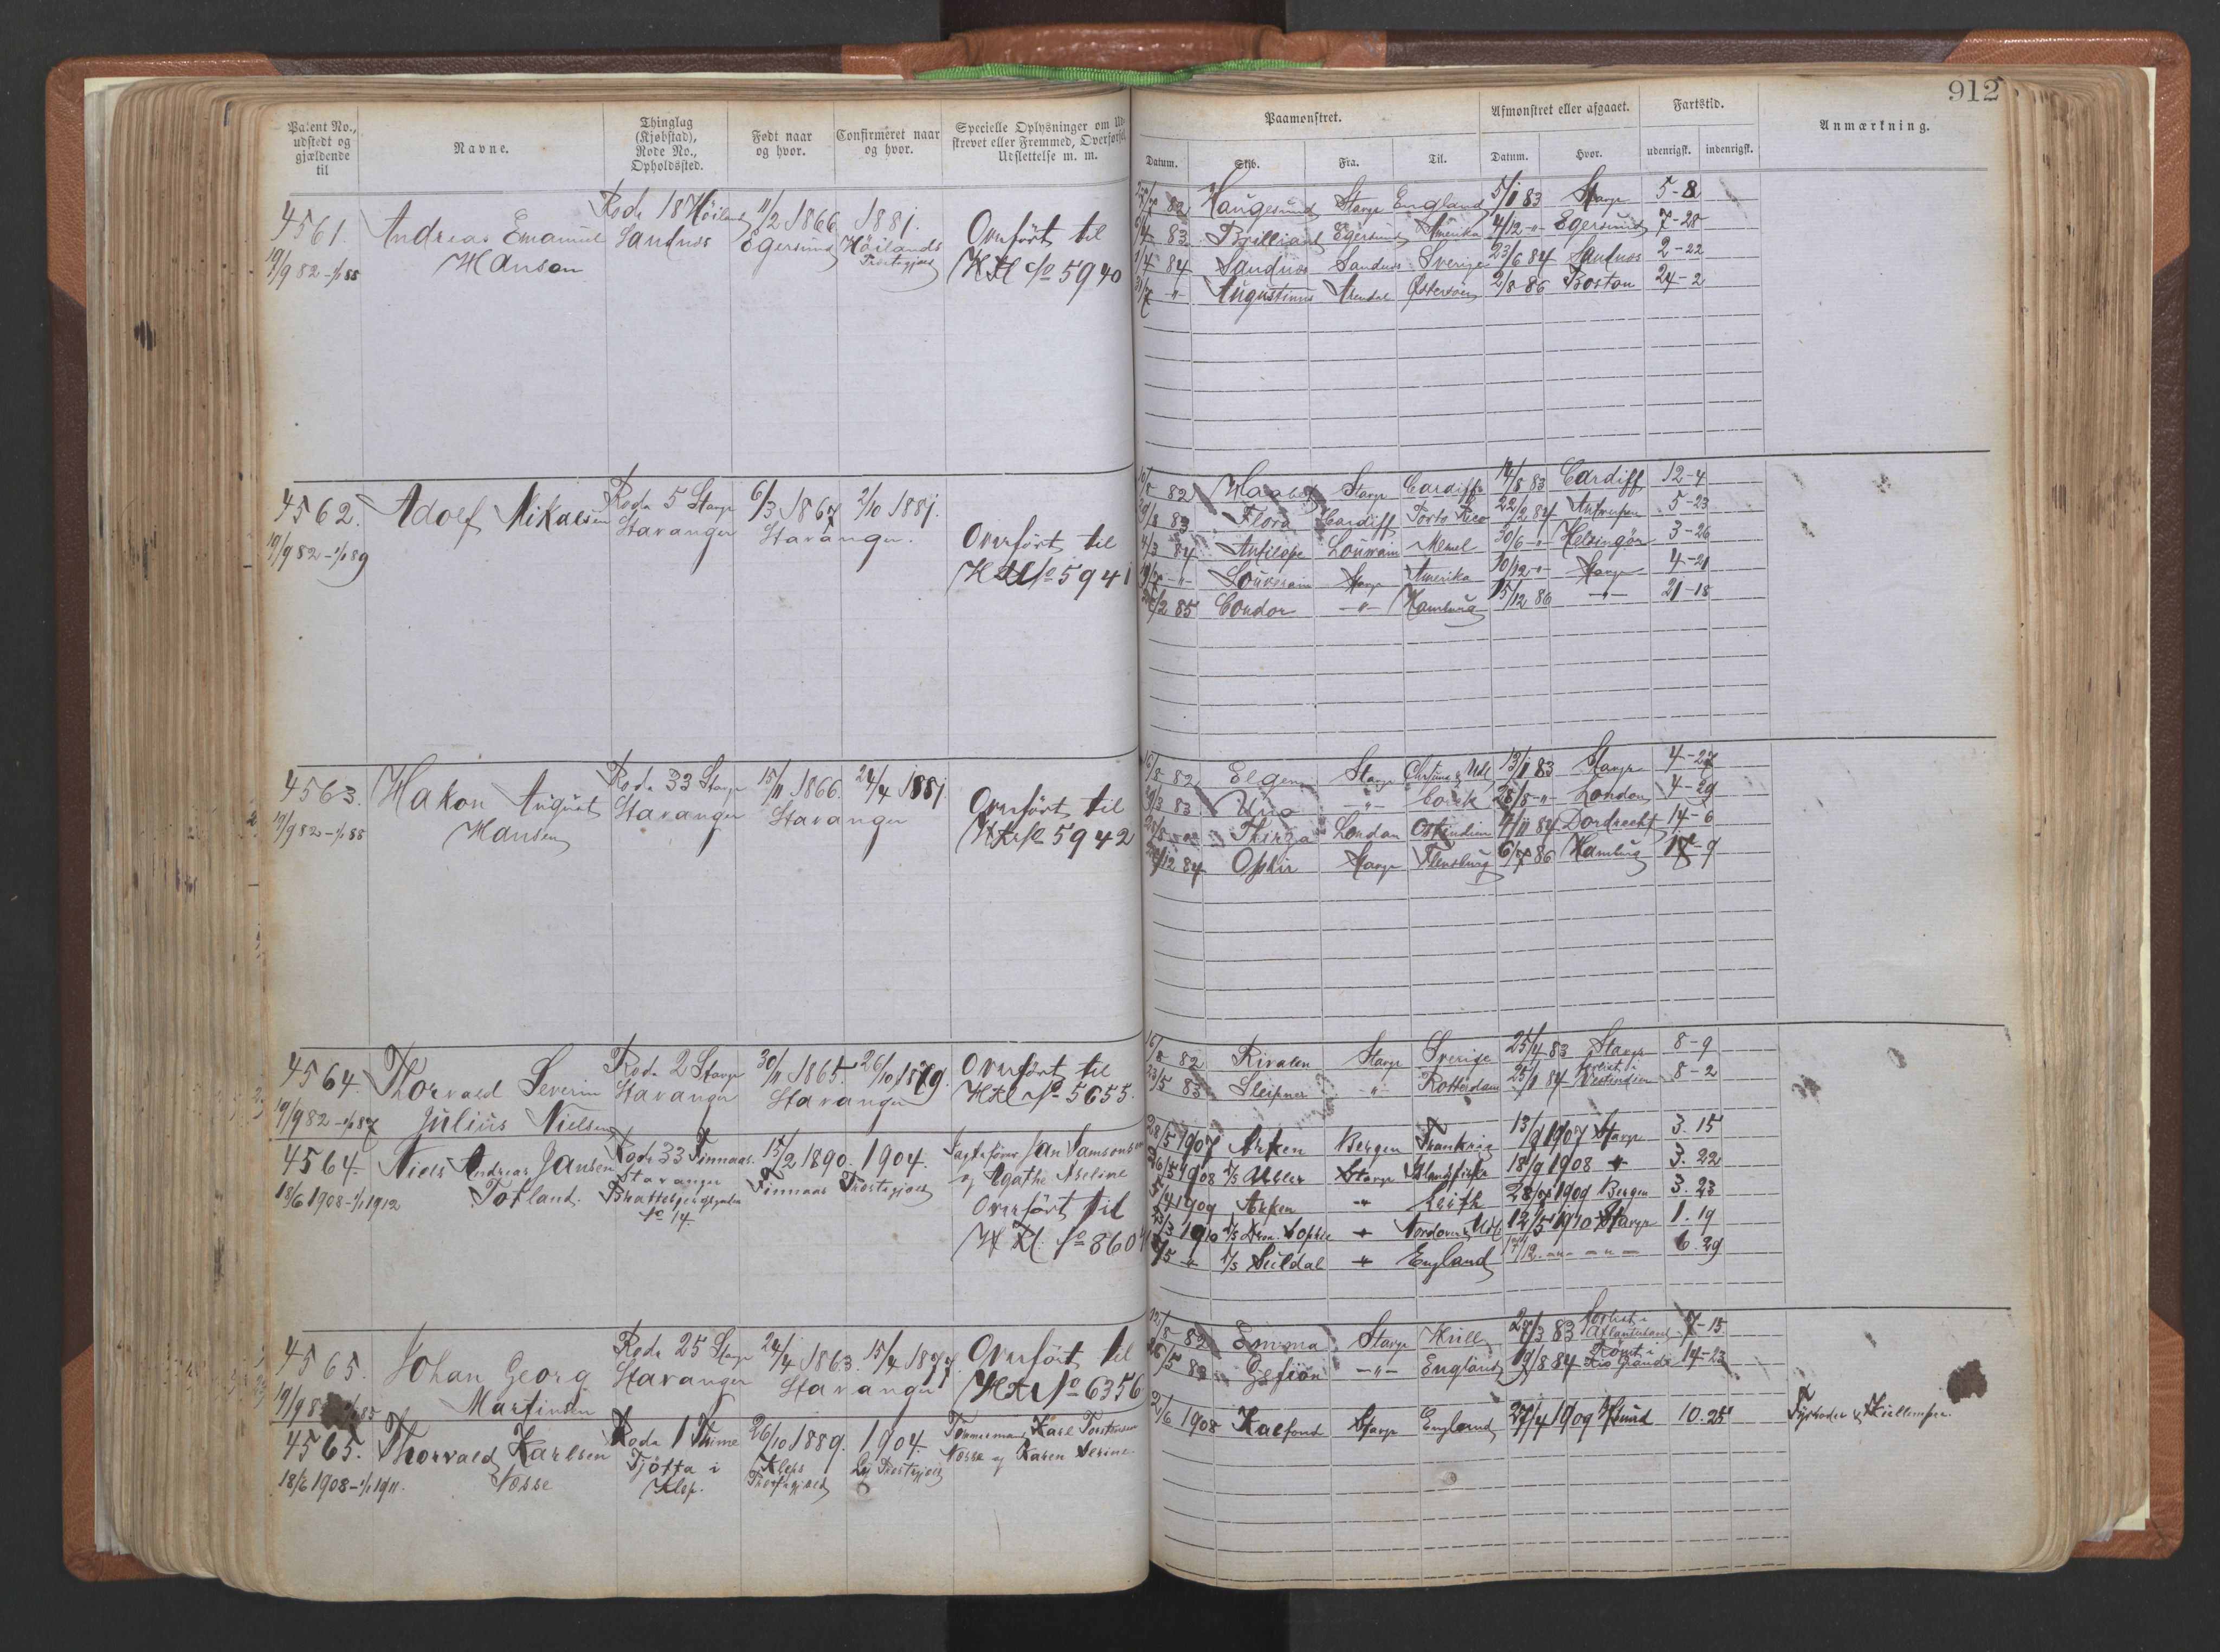 912
Patent No., udstedt og gjældende til
Navne.
Thinglag (Kjøbstad), Rode No., Opholdssted.
Født naar og hvor.
Confirmeret naar og hvor.
Specielle Oplysninger om
strevet eller Fremmed, Overførsel
Udslettelse m. m.
Paamønstret.
Afmønstret eller afgaaet.
Fartstid.
Anmærkning.
Datum. Skib. Fra. Til. Datum. Hvor. udenrigsk. indenrigsk.
4561. Andreas Emanuel Rode 18 Höiland 11/2 1866 1881.
19/9 82 - 1/1 88 Hansen Sandnes Egersund Höilands Præstegjæld
Overført til
HRl No 5940
82 Haugesund Stavgr England 5/1 83 Stavgr 5-8
83 Brilliant Egersund Amerika 4/12 -"- Egersund 7-28
84 Sandnes Sandnes Sverige 23/6 84 Sandnes 2-22
-"- Augustinus Arendal Østersøen 2/8 86 Boston 24-2
4562. Adolf Mikalsen Rode 5 Stavgr 6/3 1867 2/10 1881.
19/9 82 - 1/1 89 Stavanger Stavanger.
Overført til
HRl No 5941
82 Haabet Stavgr Cardiff 14/8 83 Cardiff 12-4
83 Flora Cardiff Porto Rico 22/2 84 Antwerpen 5-23
4/3 84 Antilope Louvrain Memel 30/6 -"- Helsingör 3-26
-"- Souverain Stavgr Amerika 10/12 -"- Stavgr 4-21
85 Condor -"- Hamburg 15/12 86 -"- 21-18
4563. Hakon August Rode 33 Stavgr 15/11 1866. 24/4 1881.
19/9 82 - 1/1 88 Hansen Stavanger Stavanger
Overført til
HRl No 5942
82 Elgen Stavgr 13/1 83 Stavgr 4-27
83 Una -"- Cork 28/8 -"- London 4-29
Thirza London Ostindien 4/11 84 Dordrecht 14-6
12 84 Ophir Stavgr Flensburg 6/7 86 Hamburg 9
4564. Thorvald Severin Rode 2 Stavgr 30/11 1865. 26/10 1879.
19/9 82 - 1/1 87 Julius Nielsen Stavanger Stavanger
Overført til
HRl No 5655.
16/8 82 Rivalen Stavgr Sverige 25/4 83 Stavgr 8-9
23/5 83 Sleipner " Rotterdam 25/1 84 forlist i Vestindien 8-2
4564. Niels Andreas Jansen Rode 33 Finnaas. 15/2 1890. 1904.
18/6 1908 - 1/1 1912 Totland. Stavanger Finnaas Præstegjæld
No 14.
Jan Samsonsen
og Agathe Aseline
Overført til
HRl. No 860
28/5 1907 Arken Bergen Frankrig 13/9 1907 Stavgr 3. 15
26/5 1908 D/S Uller Stavgr Islandsfiske 18/9 1908 " 3. 22
5/4 1909 Arken " Leith 28/7 1909 Bergen 3. 23
23/3 1910 D/S Dron. Sophie " Nordover & Udl 12/5 1910 Stavgr 1. 19
5 " D/S Suldal " England 12 -"- -"- 6. 29
4565. Johan Georg Rode 25 Stavgr 24/4 1863. 15/4 1877.
19/9 82 Martinsen Stavanger Stavanger
Overført til
HRl No 6356
82 Emma Stavgr Hull 27/3 83 Forlist i Atlanterhavet 7-15
5 83 Gefion -"- England 19/8 84 Römt i Rio Grande 14-23
4565. Thorvald Karlsen Rode 1 Thime 26/10 1889. 1904.
18/6 1908 - 1/1 1911. Næsse Tjötta i Klep. Kleps Præstegjæld Ly Præstegjæld
Tømmermand Karl Torstensen
Næsse og Karen Serine
2/6 1908 Kalfond Stavgr England 27/4 1909 10. 25
Fyrbøder & Kullemper.